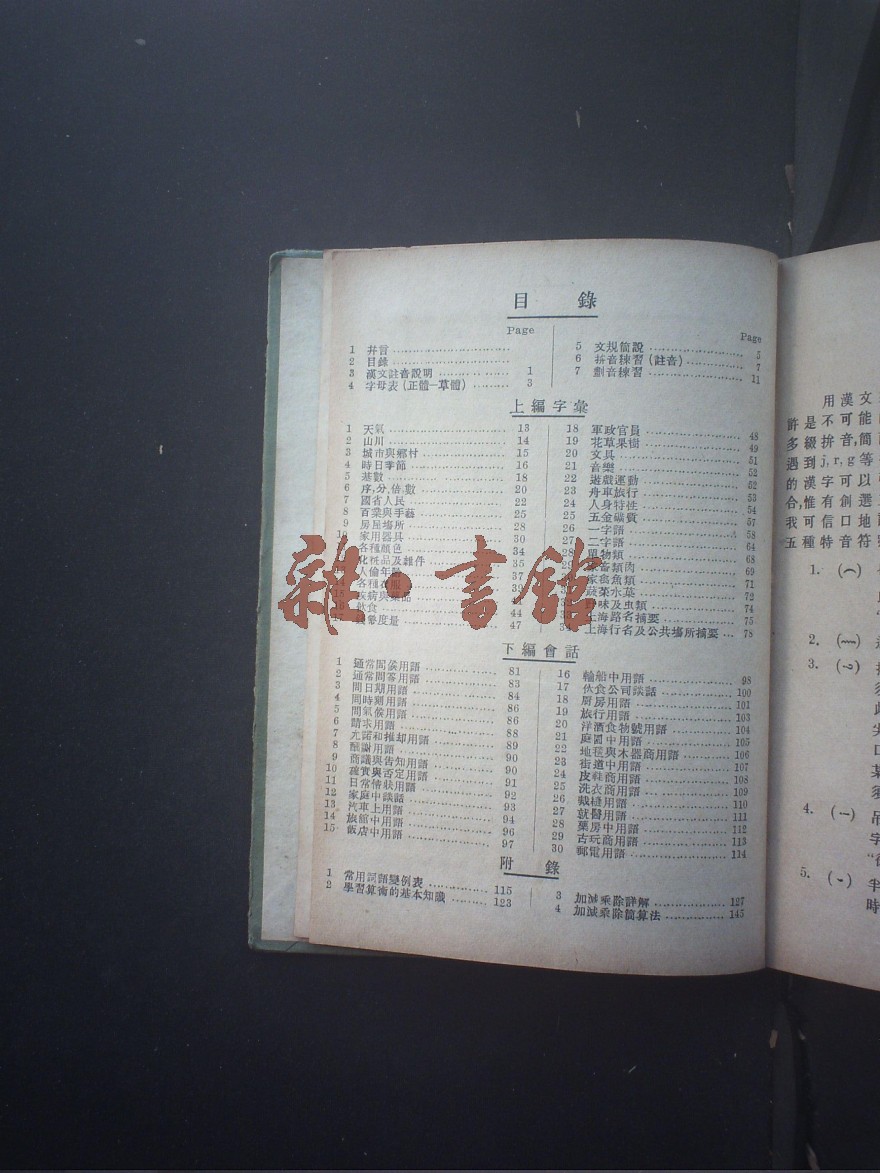 目 錄
Page
1 弁言
2 目錄
3 漢文註音說明 1
4 字母表(正體—草體) 3
Page
5 文規簡說 5
6 拼音練習(註音) 7
7 劃音練習 11
上編字彙
1 天氣 13
2 山川 14
3 城市與鄉村 15
4 時日季節 16
5 基數 18
6 序,分,倍,數 20
7 國省人民 22
8 百業與手藝 25
9 房屋場所 28
10 家用器具 30
各種顏色 34
化粧品及雜件 35
人倫年 37
各種衣服 39
疾病與藥品
飲食 44
度量 47
18 軍政官員 48
19 花草果樹 49
20 文具 51
21 音樂 52
22 遊戲運動 52
23 舟車旅行 53
24 人身特性 54
25 五金礦質 57
26 一字語 58
27 二字語 64
28 單物類 68
家畜類肉 69
家禽魚類 71
蔬菜水菓 72
野味及虫類 74
上海路名摘要 75
上海行名及公共場所摘要 78
下編會話
1 通常問候用語 81
2 通常問答用語 83
3 問日期用語 84
4 問時刻用語 86
5 問氣候用語 86
6 請求用語 88
7 允諾和推却用語 89
8 酬謝用語 90
9 商議與告知用語 90
10 確實與否定用語 91
11 日常情狀用語 92
12 家庭中談話 93
13 汽車上用語 94
14 旅館中用語 96
15 飯店中用語 97
16 輪船中用語 98
17 伙食公司談話 100
18 厨房用語 101
19 旅行用語 103
20 洋酒食物號用語 104
21 庭園中用語 105
22 地毯與木器商用語 106
23 街道中用語 107
24 皮鞋商用語 108
25 洗衣商用語 109
26 裁縫用語 110
27 就醫用語 111
28 藥房中用語 112
29 古玩商用語 113
30 郵電用語 114
附 錄
1 常用詞語變例表 115
2 學習算術的基本知識 123
3 加減乘除詳解 127
4 加減乘除簡算法 145
雜·書館
用漢文
許是不可能
多綴拚音,簡
遇到j,r,g等
的漢字可以
合,惟有創選
我可信口地
五種特音符
1. (⌒)
2. (﹏)
3. (~)
4. (—) 吊
字
5. (⌣) 半
時